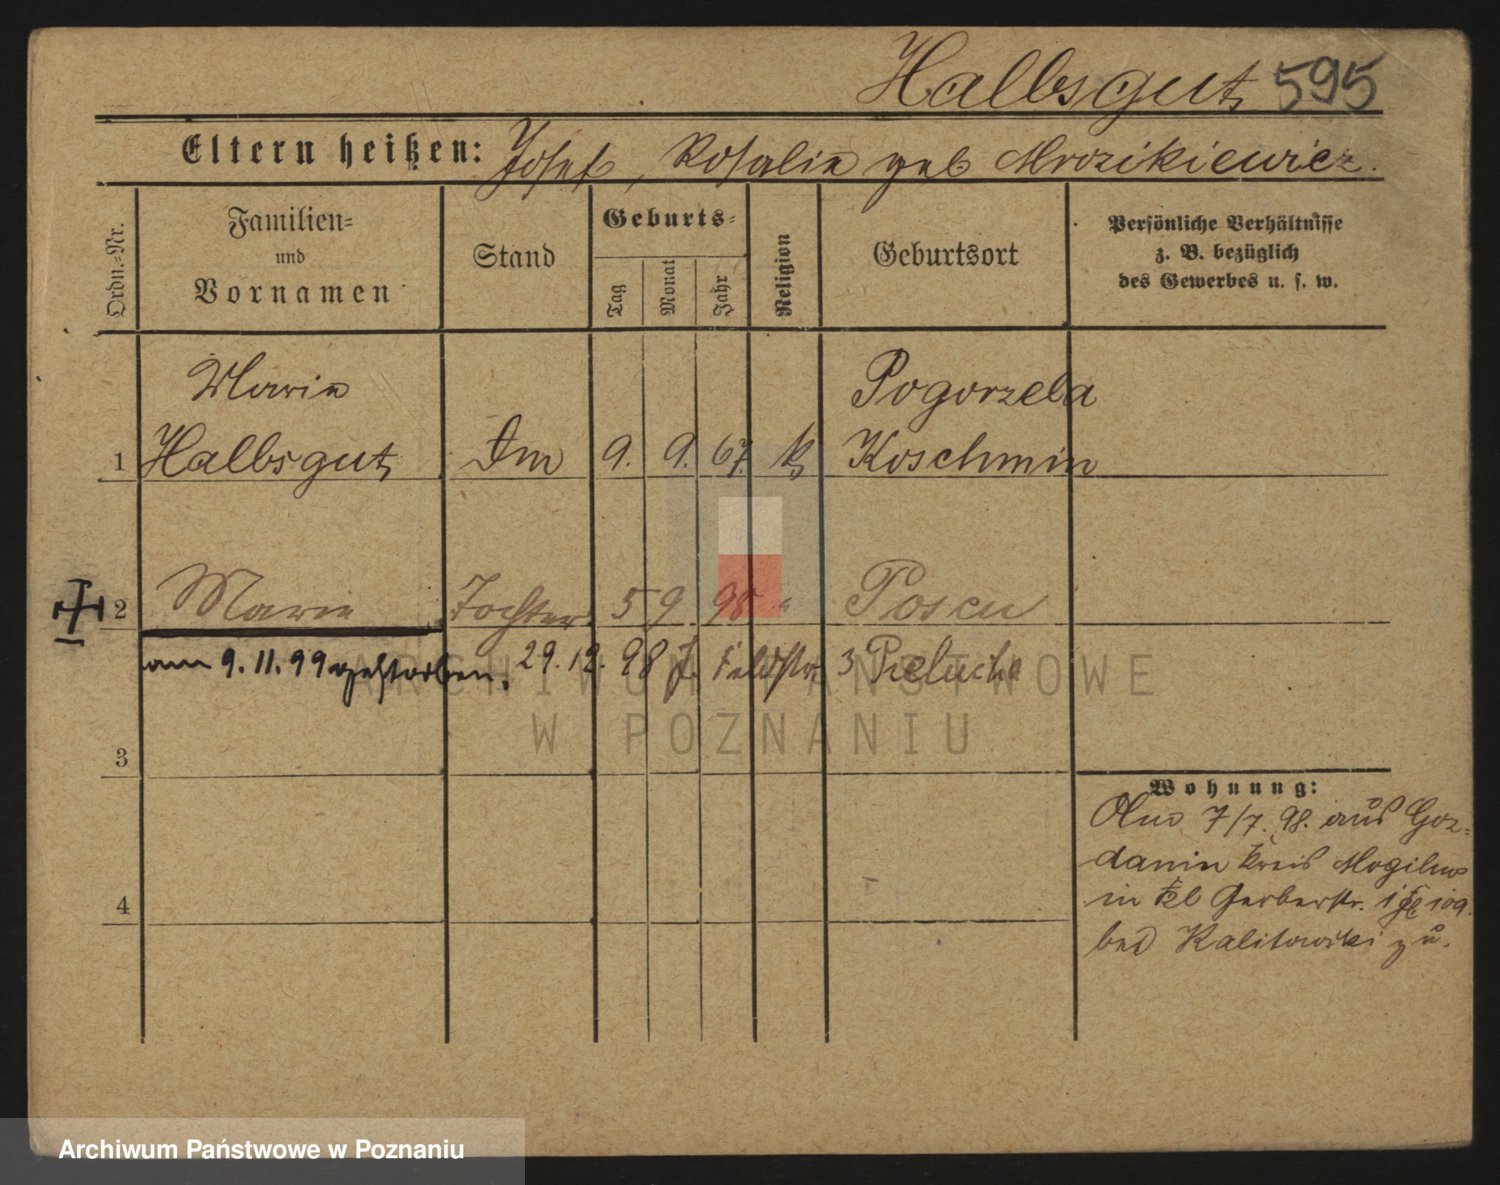 Halbsgut 595
Eltern heißen: Josef, Rosalie geb Mrozikiewicz.
Ordn.-Nr.
Familien-
und
Vornamen
Stand
Geburts-
Tag
Monat
Jahr
Religion
Geburtsort
Persönliche Verhältnisse
z. B. bezüglich
des Gewerbes u. s. w.
Marie Pogorzela
1 Halbsgut 9. 9. 67. k Koschmin
2 Marie Tochter 5 9 98 " Posen
am 9.11.99 gestorben. 29.12. 98 Feldstr. 3
3
4
Wohnung:
7/7. 98. aus Goz-
danin Kreis Mogilno
in Gerberstr.
bei zu.
ARCHIWUM PAŃSTWOWE
W POZNANIU
Archiwum Państwowe w Poznaniu